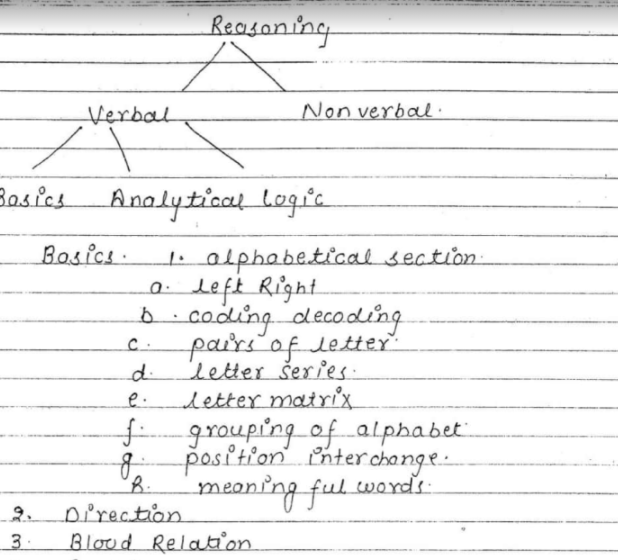 Reasoning
Verbal Non verbal.
Basics Analytical Logic
Basics. 1. alphabetical section.
a. left Right
b. coding decoding
c. pairs of letter.
d. letter series.
e. letter matrix
f. grouping of alphabet
g. position interchange.
h. meaning ful words.
2. Direction
3. Blood Relation